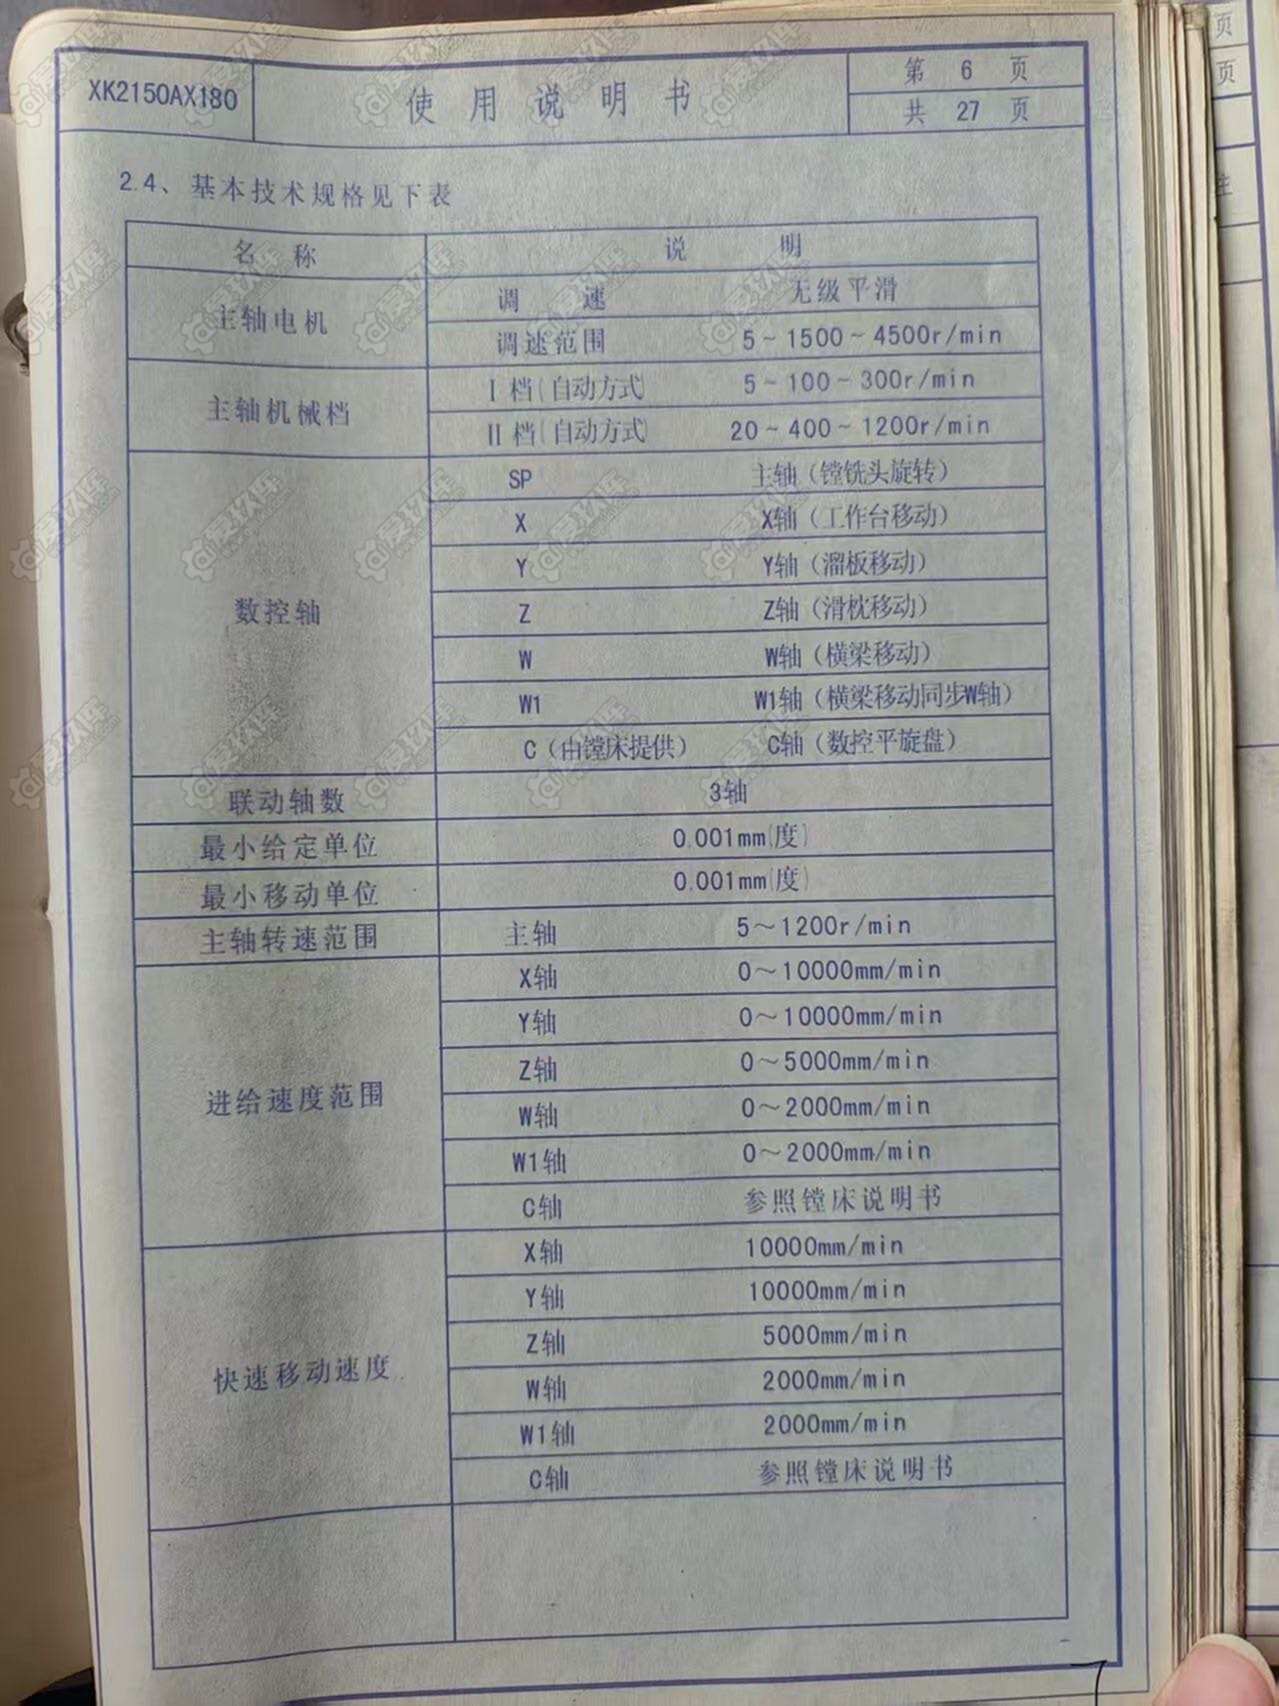 XK2150AX180
使用说明书
第 6 页
共 27 页
2.4、基本技术规格见下表
名 称 说 明
主轴电机 调 速 无级平滑
调速范围 5~1500~4500r/min
主轴机械档 I 档(自动方式) 5~100~300r/min
II 档(自动方式) 20~400~1200r/min
数控轴 SP 主轴（镗铣头旋转）
X X轴（工作台移动）
Y Y轴（溜板移动）
Z Z轴（滑枕移动）
W W轴（横梁移动）
W1 W1轴（横梁移动同步W轴）
C（由镗床提供） C轴（数控平旋盘）
联动轴数 3轴
最小给定单位 0.001mm(度)
最小移动单位 0.001mm(度)
主轴转速范围 主轴 5～1200r/min
进给速度范围 X轴 0～10000mm/min
Y轴 0～10000mm/min
Z轴 0～5000mm/min
W轴 0～2000mm/min
W1轴 0～2000mm/min
C轴 参照镗床说明书
快速移动速度 X轴 10000mm/min
Y轴 10000mm/min
Z轴 5000mm/min
W轴 2000mm/min
W1轴 2000mm/min
C轴 参照镗床说明书
页
页